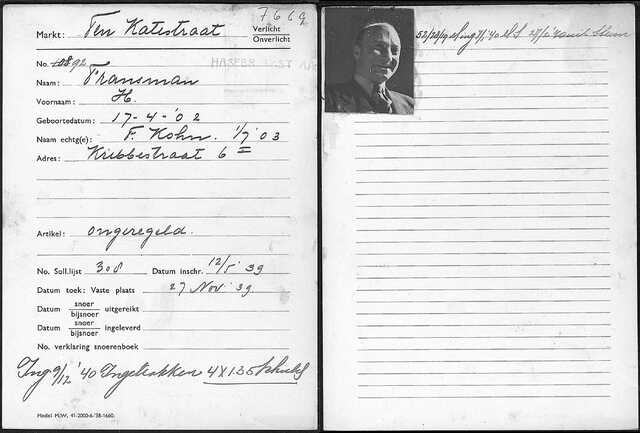 7669
Markt: Ten Katestraat
Verlicht
Onverlicht
No. 10892
Naam: Fransman
Voornaam: H.
Geboortedatum: 17-4-'02
Naam echtg(e): F. Kohn. 1/7 '03
Adres: Kribbestraat 6 II
Artikel: ongeregeld.
No. Soll.lijst 308 Datum inschr. 12/5 '39
Datum toek: Vaste plaats 27 Nov '39.
Datum snoer bijsnoer uitgereikt
Datum snoer bijsnoer ingeleverd
No. verklaring snoerenboek
Ing 9/12 '40 Ingetrokken 4 X 135
Model M.W. 41-2000-6-'38-1660.